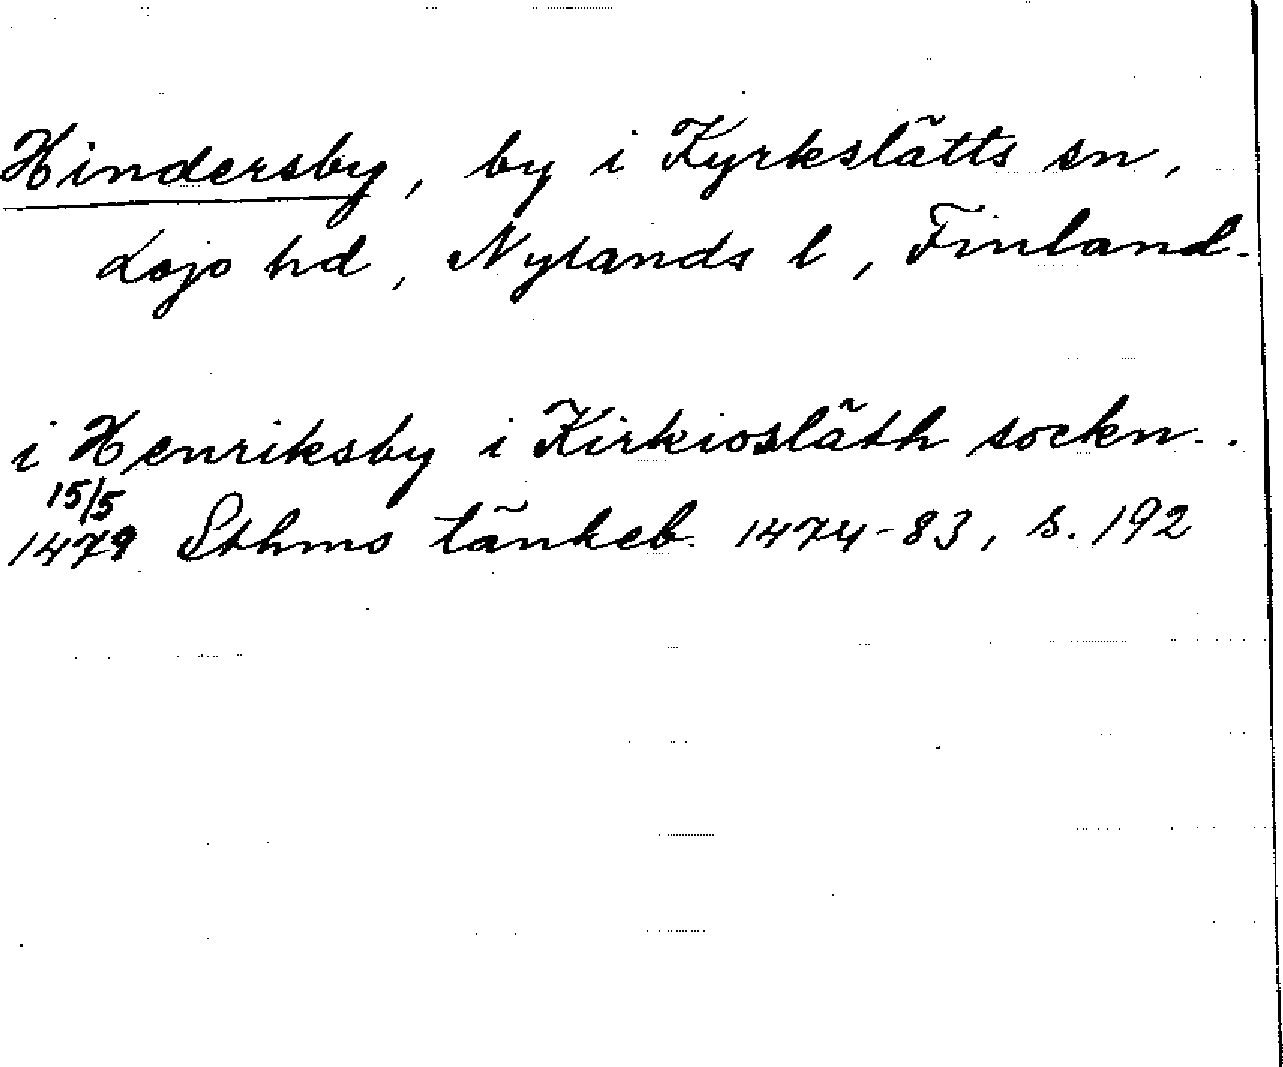 Hindersby, by i Kyrkslätts sn,
Lojo hd, Nylands l, Finland.
i Henriksby i Kirkiosläth sockn..
15/5
1479 Sthms tänkeb. 1474-83, s. 192